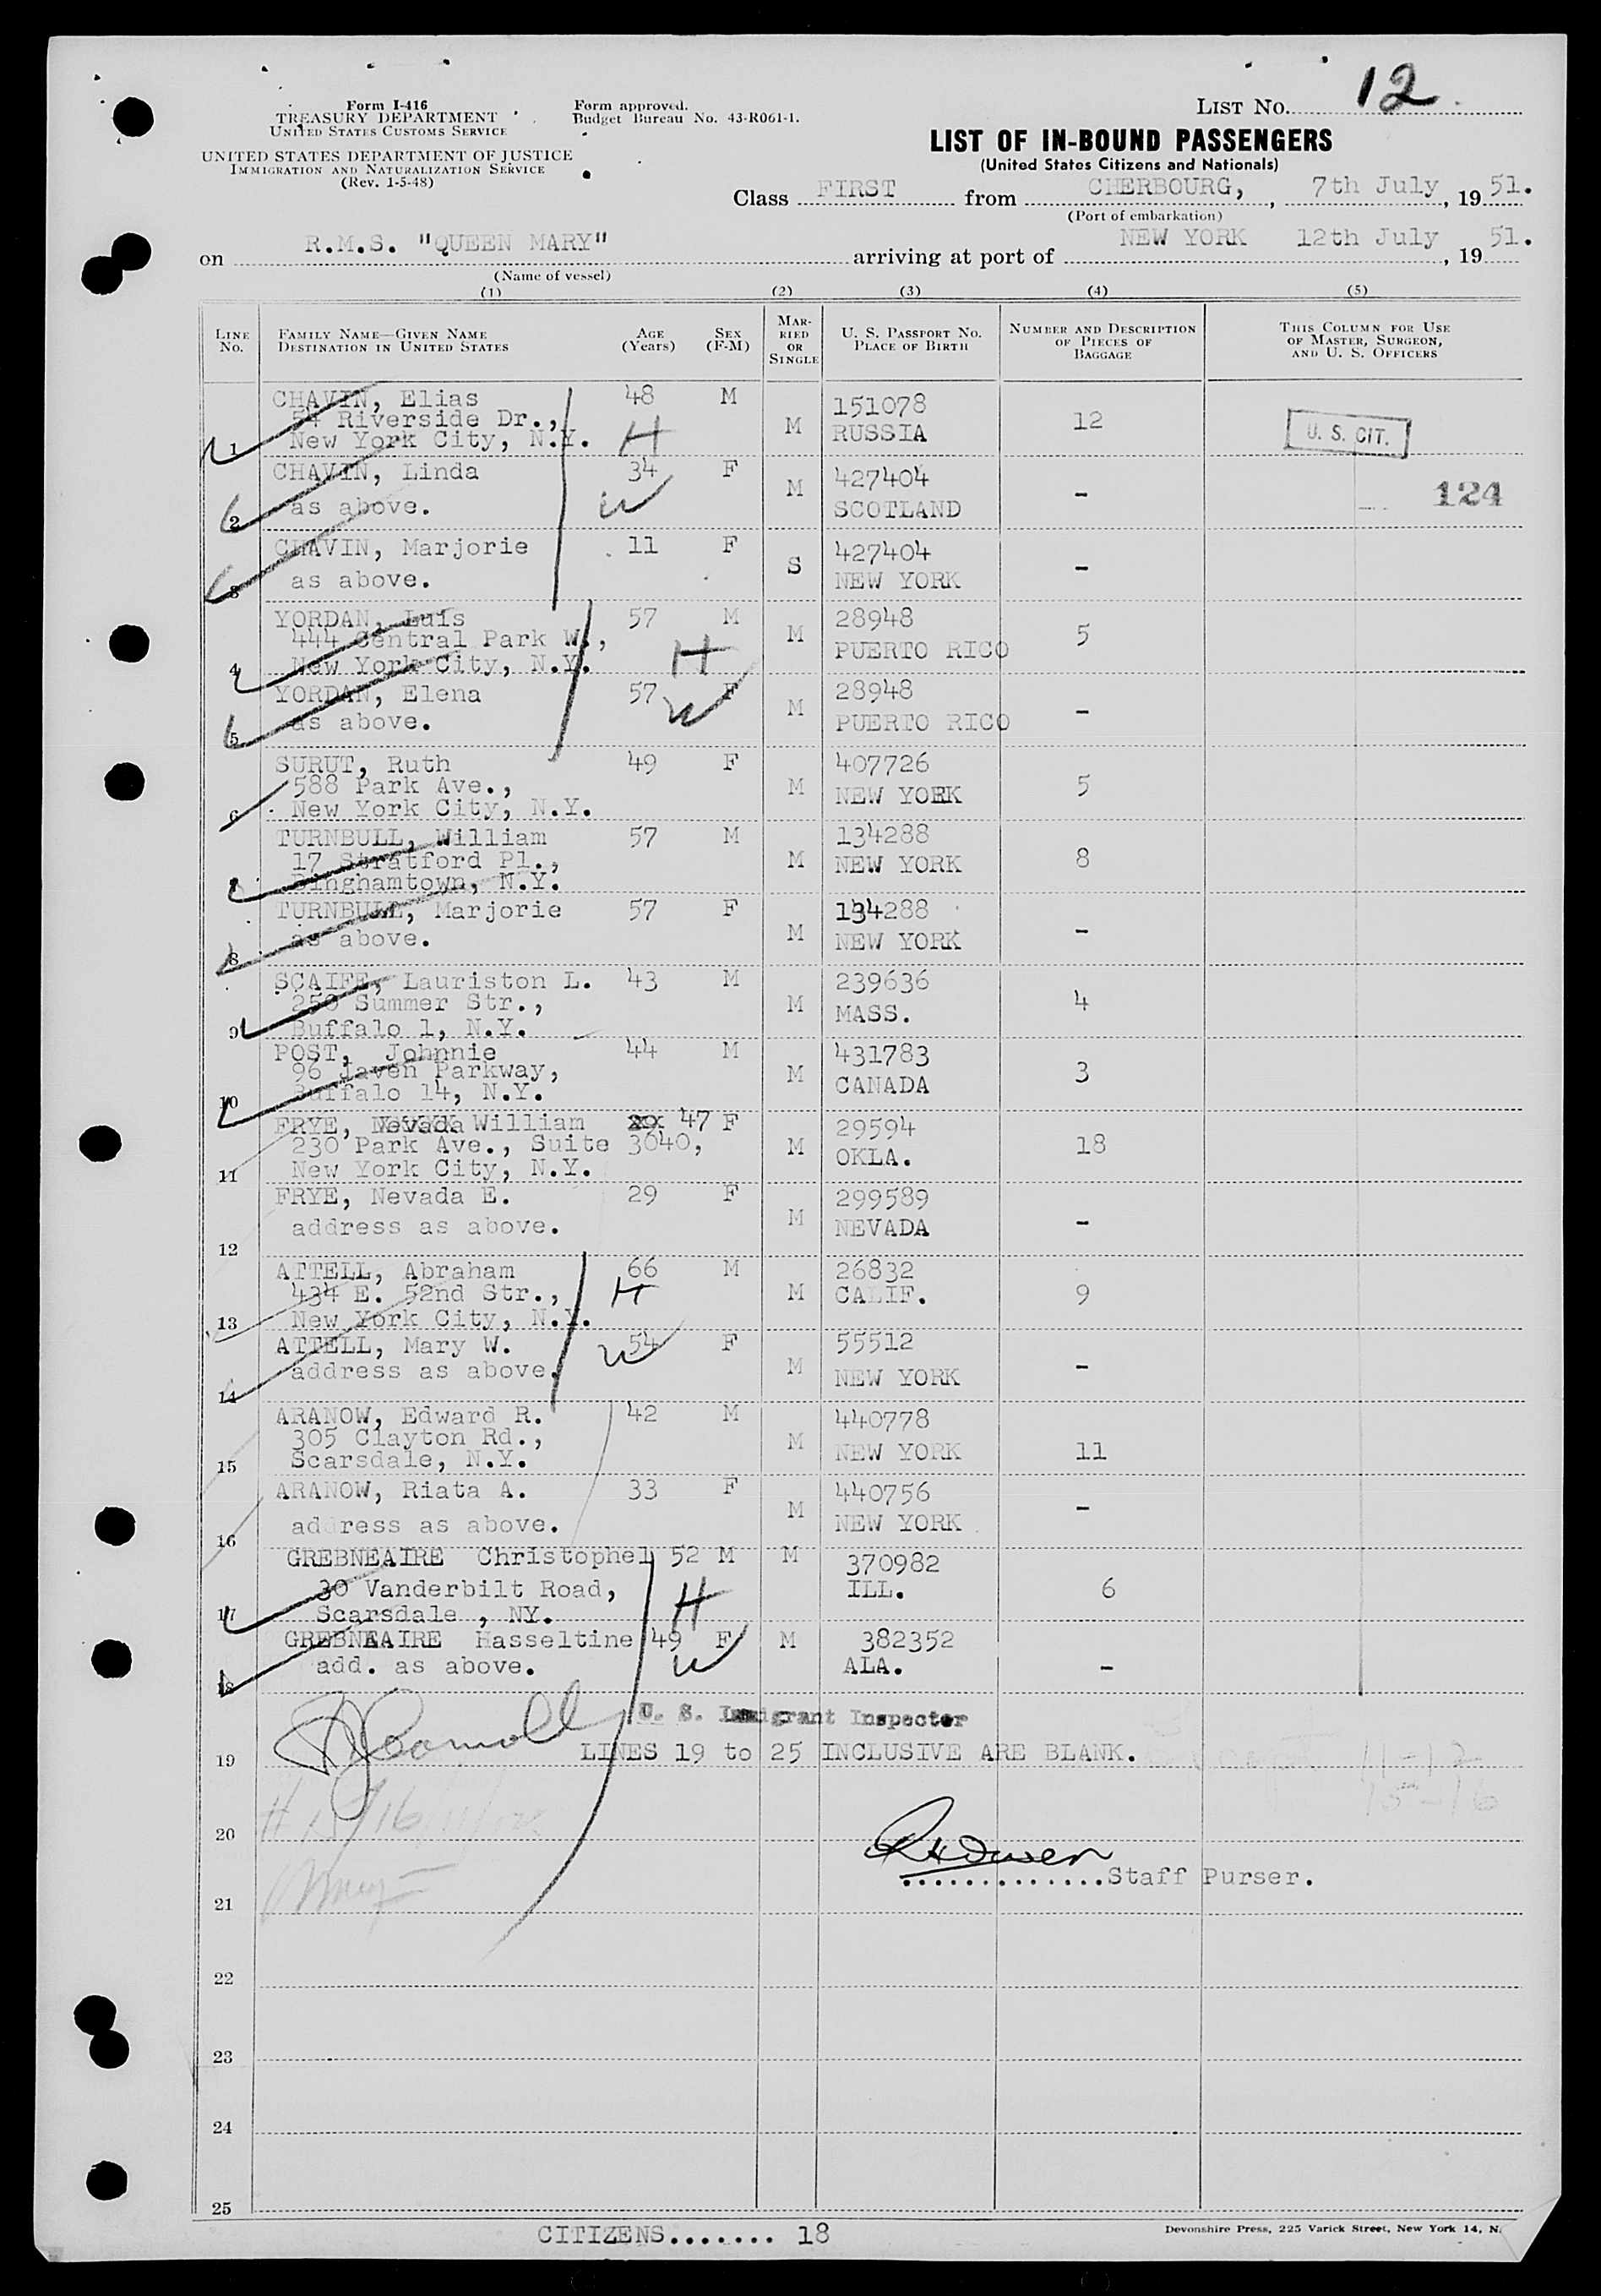 LIST NO. 12
Form I-416
TREASURY DEPARTMENT
UNITED STATES CUSTOMS SERVICE
Form approved.
Budget Bureau No. 43-R061-1.
UNITED STATES DEPARTMENT OF JUSTICE
IMMIGRATION AND NATURALIZATION SERVICE
(Rev. 1-5-48)
LIST OF IN-BOUND PASSENGERS
(United States Citizens and Nationals)
Class FIRST from CHERBOURG, , 7th July , 19 51.
(Port of embarkation)
on R.M.S. "QUEEN MARY" arriving at port of NEW YORK 12th July , 19 51.
(Name of vessel)
(1) (2) (3) (4) (5)
LINE NO. FAMILY NAME—GIVEN NAME DESTINATION IN UNITED STATES AGE (Years) SEX (F-M) MARRIED OR SINGLE U. S. PASSPORT NO. PLACE OF BIRTH NUMBER AND DESCRIPTION OF PIECES OF BAGGAGE THIS COLUMN FOR USE OF MASTER, SURGEON, AND U. S. OFFICERS
CHAVIN, Elias 48 M 151078
54 Riverside Dr., M 12 U. S. CIT.
1 New York City, N.Y. H RUSSIA
CHAVIN, Linda 34 F 427404
M - 124
2 as above. W SCOTLAND
CHAVIN, Marjorie 11 F 427404
S -
3 as above. NEW YORK
YORDAN, Luis 57 M 28948
444 Central Park W., M 5
4 New York City, N.Y. H PUERTO RICO
YORDAN, Elena 57 F 28948
5 as above. W M PUERTO RICO -
SURUT, Ruth 49 F 407726
588 Park Ave., M NEW YORK 5
6 New York City, N.Y.
TURNBULL, William 57 M 134288
17 Stratford Pl., M NEW YORK 8
7 Binghamtown, N.Y.
TURNBULL, Marjorie 57 F 134288
8 as above. M NEW YORK -
SCAIFE, Lauriston L. 43 M 239636
250 Summer Str., M MASS. 4
9 Buffalo 1, N.Y.
POST, Johnnie 44 M 431783
96 Javen Parkway, M CANADA 3
10 Buffalo 14, N.Y.
FRYE, Nevada William 29 47 F 29594
230 Park Ave., Suite 3040, M OKLA. 18
11 New York City, N.Y.
FRYE, Nevada E. 29 F 299589
address as above. M NEVADA -
12
ATTELL, Abraham 66 M 26832
434 E. 52nd Str., H M CALIF. 9
13 New York City, N.Y.
ATTELL, Mary W. 54 F 55512
address as above. W M NEW YORK -
14
ARANOW, Edward R. 42 M 440778
305 Clayton Rd., M NEW YORK 11
15 Scarsdale, N.Y.
ARANOW, Riata A. 33 F 440756
address as above. M NEW YORK -
16
GREBNEAIRE Christophel 52 M M 370982
30 Vanderbilt Road, H ILL. 6
17 Scarsdale , NY.
GREBNEAIRE Hasseltine 49 F M 382352
add. as above. W ALA. -
18
U. S. Immigrant Inspector
19 LINES 19 to 25 INCLUSIVE ARE BLANK.
11-12
15-16
20
RH Owen
..............Staff Purser.
21
22
23
24
25
CITIZENS....... 18
Devonshire Press, 225 Varick Street, New York 14, N.